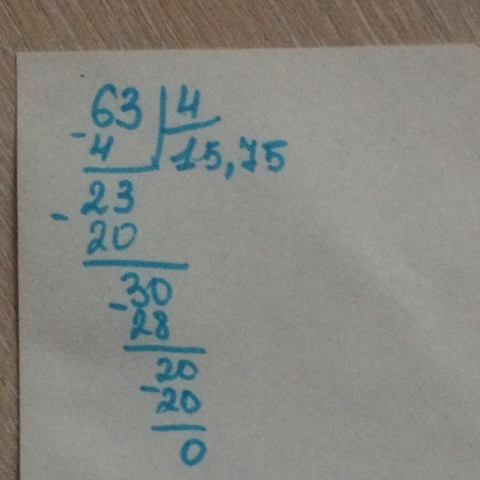 63 4
- 4 15,75
- 23
20
- 30
28
- 20
20
0